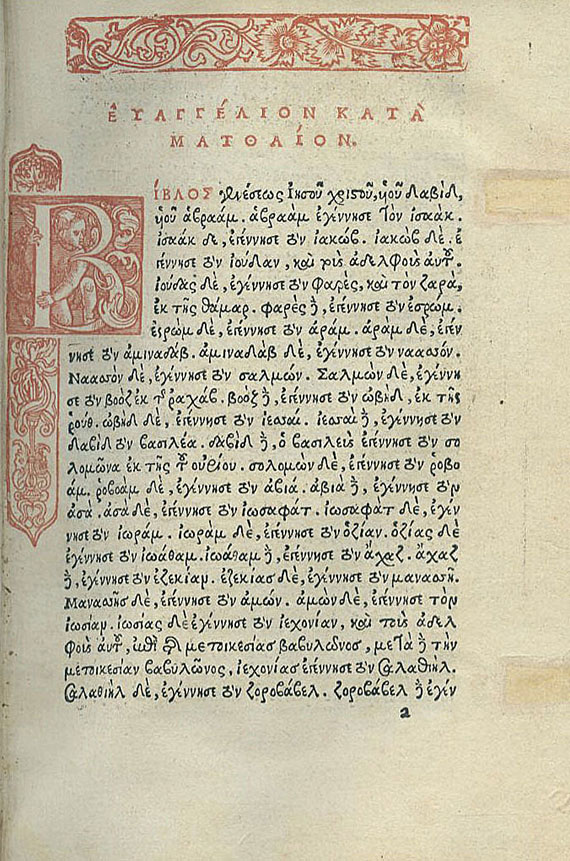 ΕΥΑΓΓΕΛΙΟΝ ΚΑΤᾺ
ΜΑΤΘΑΙΟΝ.
ΒΙΒΛΟΣ γενέσεως ἰησοῦ χριστοῦ, υἱοῦ δαβὶδ,
υἱοῦ ἀβραάμ. ἀβραὰμ ἐγέννησε τὸν ἰσαάκ.
ἰσαάκ δὲ, ἐγέννησε τὸν ἰακώβ. ἰακὼβ δὲ. ἐ
γέννησε τὸν ἰούδαν, καὶ τοὺς ἀδελφοὺς αὐτοῦ.
ἰούδας δὲ, ἐγέννησε τὸν φαρὲς, καὶ τὸν ζαρὰ,
ἐκ τῆς θάμαρ. φαρὲς δὲ, ἐγέννησε τὸν ἐσρώμ.
ἐσρὼμ δὲ, ἐγέννησε τὸν ἀράμ. ἀρὰμ δὲ, ἐγέν
νησε τὸν ἀμιναδάβ. ἀμιναδὰβ δὲ, ἐγέννησε τὸν ναασσόν.
Ναασσὸν δὲ, ἐγέννησε τὸν σαλμών. Σαλμὼν δὲ, ἐγέννη
σε τὸν βοὸζ ἐκ τῆς ραχάβ. βοὸζ δὲ, ἐγέννησε τὸν ὠβὴδ, ἐκ τῆς
ῥούθ. ὠβὴδ δὲ, ἐγέννησε τὸν ἰεσσαί. ἰεσσαὶ δὲ, ἐγέννησε τὸν
δαβὶδ τὸν βασιλέα. δαβὶδ δὲ, ὁ βασιλεὺς ἐγέννησε τὸν σο
λομῶνα ἐκ τῆς τοῦ οὐρίου. σολομὼν δὲ, ἐγέννησε τὸν ῥοβο
άμ. ῥοβοὰμ δὲ, ἐγέννησε τὸν ἀβιά. ἀβιὰ δὲ, ἐγέννησε τὸν
ἀσά. ἀσὰ δὲ, ἐγέννησε τὸν ἰωσαφάτ. ἰωσαφὰτ δὲ, ἐγέν
νησε τὸν ἰωράμ. ἰωρὰμ δὲ, ἐγέννησε τὸν ὀζίαν. ὀζίας δὲ
ἐγέννησε τὸν ἰωάθαμ. ἰωάθαμ δὲ, ἐγέννησε τὸν ἄχαζ. ἄχαζ
δὲ, ἐγέννησε τὸν ἐζεκίαμ. ἐζεκίας δὲ, ἐγέννησε τὸν μανασσῆ.
Μανασσῆς δὲ, ἐγέννησε τὸν ἀμών. ἀμὼν δὲ, ἐγέννησε τὸν
ἰωσίαν. ἰωσίας δὲ ἐγέννησε τὸν ἰεχονίαν, καὶ τοὺς ἀδελ
φοὺς αὐτοῦ, ἐπὶ τῆς μετοικεσίας βαβυλῶνος, μετὰ δὲ τὴν
μετοικεσίαν βαβυλῶνος, ἰεχονίας ἐγέννησε τὸν Σαλαθιήλ.
Σαλαθιὴλ δὲ, ἐγέννησε τὸν ζοροβάβελ. ζοροβάβελ δὲ ἐγέν
a